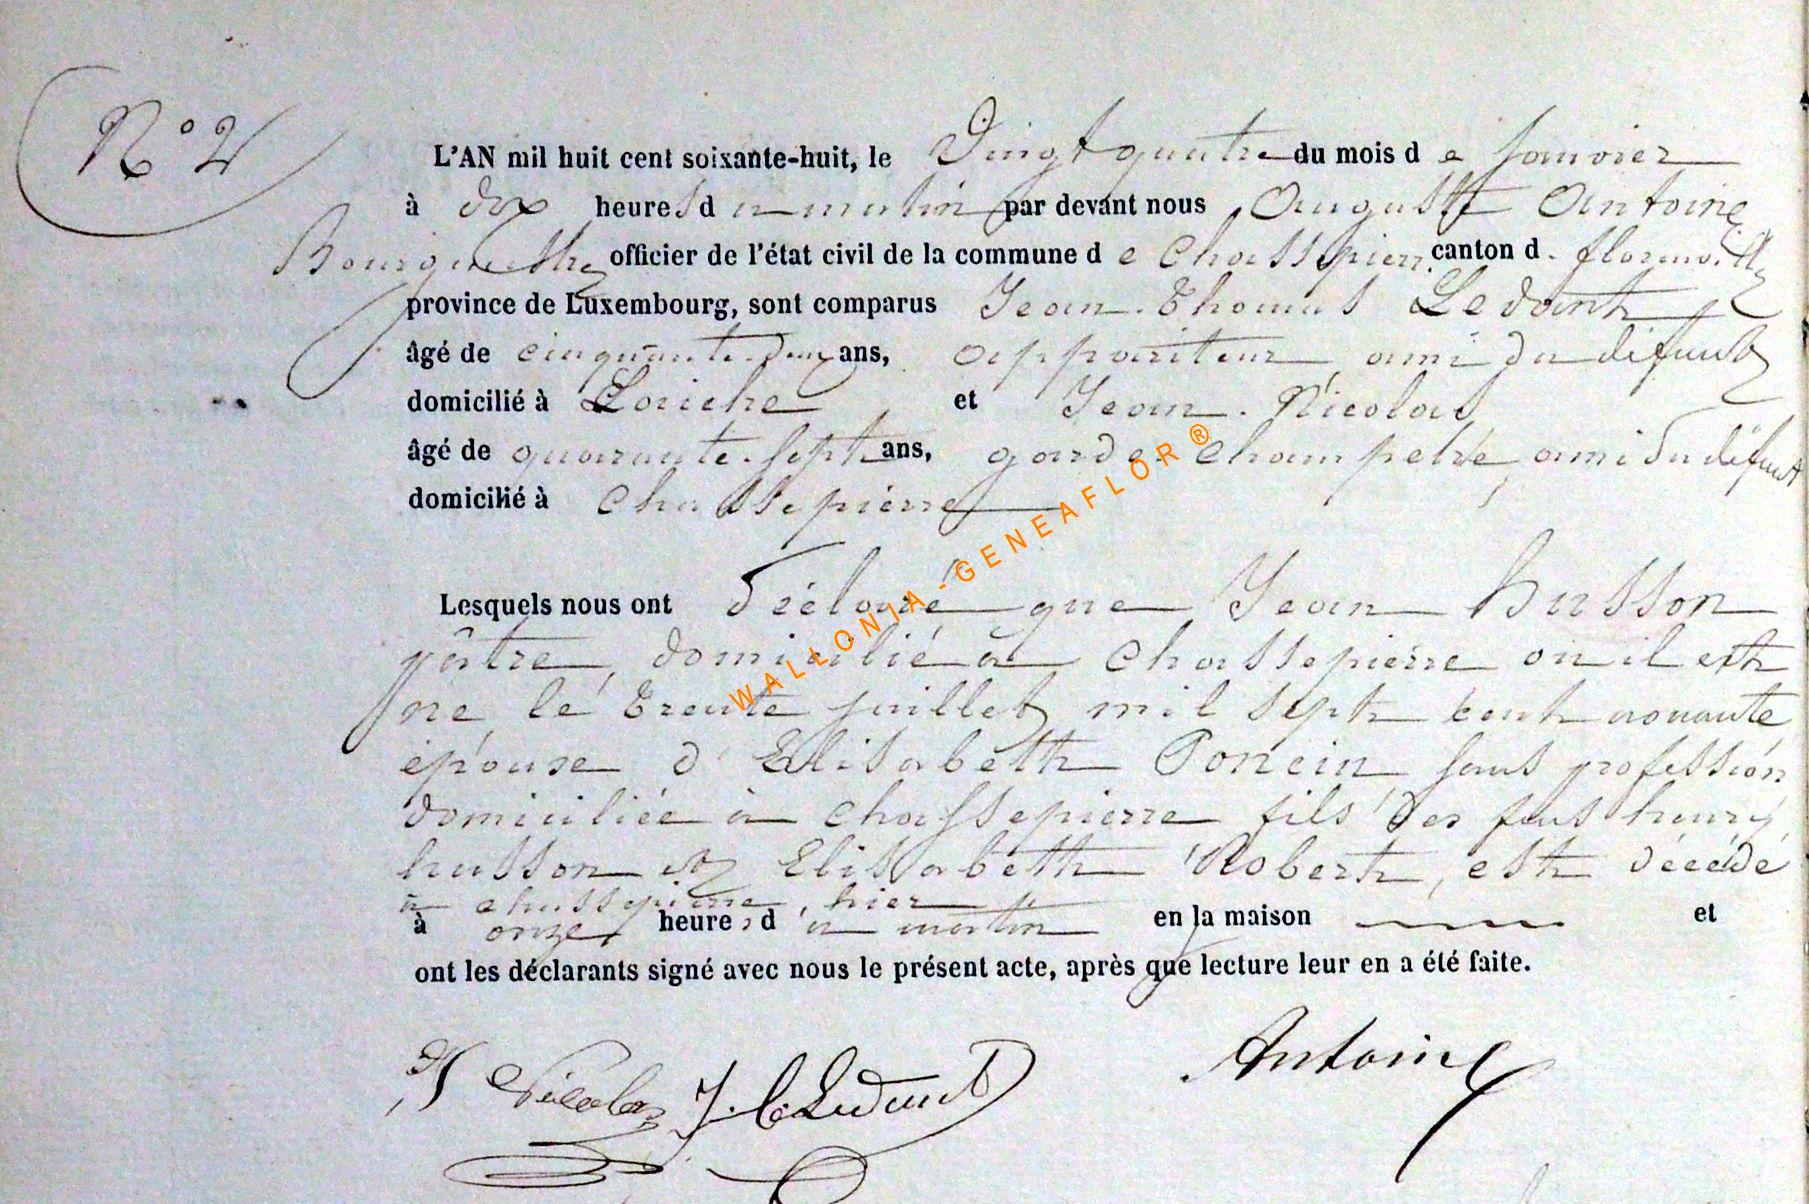 N° 2
L'AN mil huit cent soixante-huit, le Vingt quatre du mois de Janvier
à dix heures du matin par devant nous Auguste Antoine
Bourgmestre officier de l'état civil de la commune de Chassepierre canton d. florenville
province de Luxembourg, sont comparus Jean Thomas Ledant
âgé de cinquante deux ans, appariteur, ami du défunt
domicilié à Laiche et Jean Nicolas
âgé de quarante sept ans, garde champetre, ami du défunt
domicilié à Chassepierre
Lesquels nous ont déclaré que Jean Husson
pâtre, domicilié à Chassepierre ou il est
né le trente juillet mil sept cent nonante
épouse d'Elisabeth Poncin sans profession
domiciliée à Chassepierre fils des feus henry
husson et Elisabeth Robert, est décédé
à chassepierre, hier
à onze heures du matin en la maison et
ont les déclarants signé avec nous le présent acte, après que lecture leur en a été faite.
Nicolas J. t. Ledant Antoine
WALLONIA-GENEAFLOR®